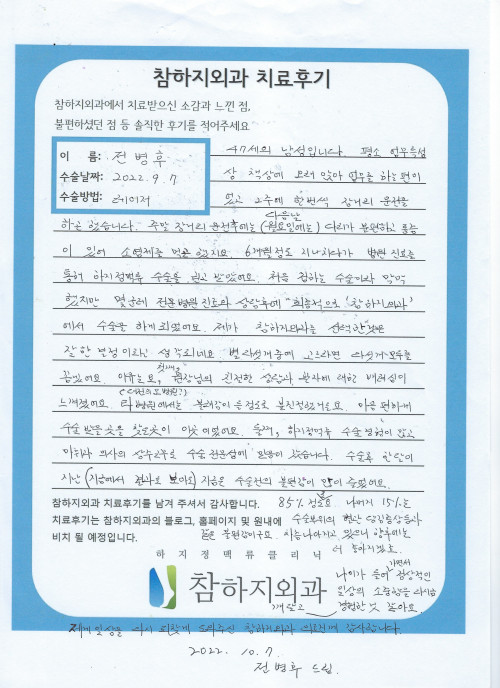 참하지외과 치료후기
참하지외과에서 치료받으신 소감과 느낀 점,
불편하셨던 점 등 솔직한 후기를 적어주세요
이 름: 전병후
수술날짜: 2022. 9. 7
수술방법: 레이저
47세의 남성입니다. 평소 업무특성
상 책상에 오래 앉아 업무를 하는편이
었고 2주에 한번씩 장거리 운전을
하곤 했습니다. 주말 장거리 운전후에는 다음날(월요일에는) 다리가 불편하고 통증
이 있어 소염제를 먹곤 했지요. 6개월정도 지나치다가 병원 진료를
통해 하지정맥류 수술을 권고 받았어요. 처음 접하는 수술이라 막막
했지만 몇군데 전문병원 진료와 상담후에 "최종적으로 '참하지외과'
에서 수술을 하게 되었어요. 제가 참하지외과를 선택한것은
잘한 결정이라고 생각되네요. 병원선택중에 고르라면 다섯가지 모두를
꼽았어요. 이유는요, 첫째, 원장님의 친절한 상담과 환자에 대한 배려심이
느껴졌어요. (대전의 모병원?) 타병원에서는 불쾌감이 들 정도로 불친절했거든요. 마음 편하게
수술 받을 곳을 찾은곳이 이곳 이었어요. 둘째, 하지정맥류 수술 경험이 많고
의사의 수술 전문성에 믿음이 갔습니다. 수술후 한달이
지난 (지금에서 결과로 보아도) 지금은 수술전의 불편함이 많이 줄었어요.
참하지외과 치료후기를 남겨 주셔서 감사합니다. 85% 정도요. 나머지 15%는
치료후기는 참하지외과의 블로그, 홈페이지 및 원내에 수술부위의 땅김증상등의
비치 될 예정입니다. 불편함이구요. 시는나아지고 있으니 향후에는
하 지 정 맥 류 클 리 닉 더 좋아지겠죠.
참하지외과
나이가 들어가면서 정상적인
일상의 소중함을 다시금
깨닫고 경험한것 같아요.
제게 일상을 다시 되찾게 도와주신 참하지외과 의료진께 감사합니다.
2022. 10. 7.
전병후 드림.